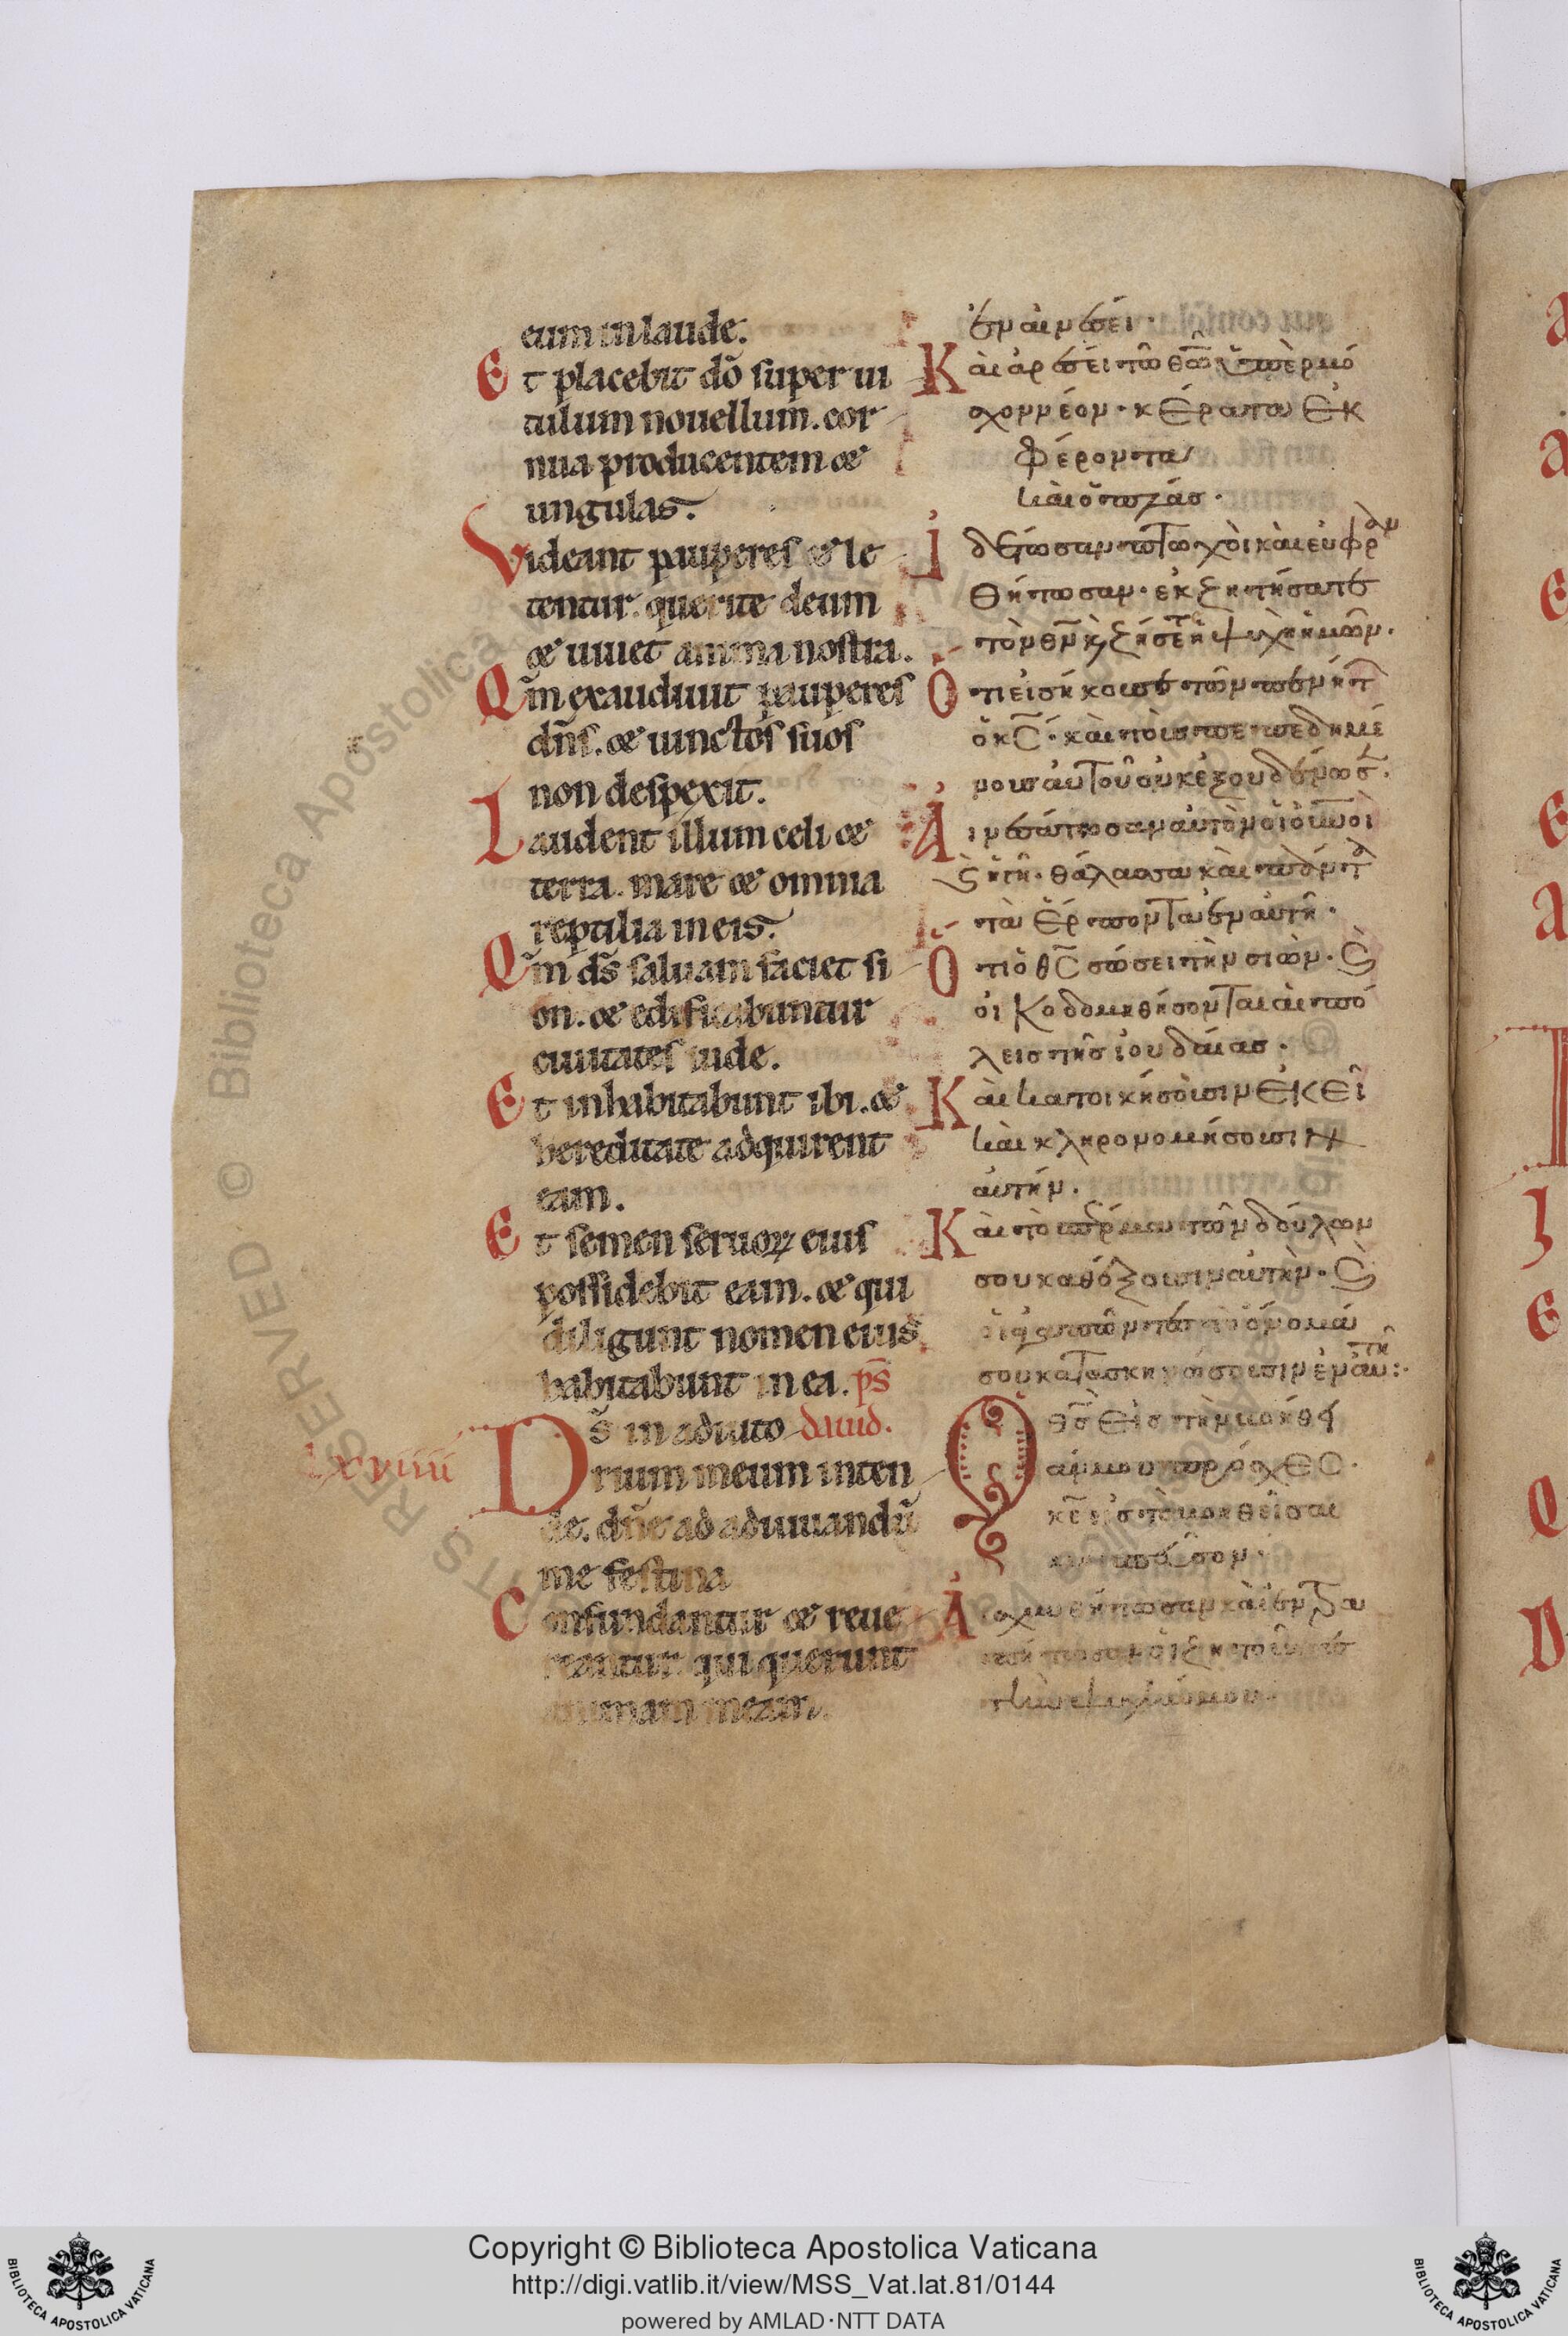 eum in laude.
Et placebit dō super ui
tulum nouellum. cor
nua producentem &
ungulas.
Videant pauperes & le
tentur. querite deum
& uiuet anima nostra.
Qm̄ exaudiuit pauperes
dn̄s. & uinctos suos
non despexit.
Laudent illum celi &
terra. mare & omnia
reptilia in eis.
Qm̄ ds̄ saluam faciet si
on. & edificabuntur
ciuitates iude.
Et inhabitabunt ibi. &
hereditate adquirent
eam.
Et semen seruoꝝ eius
possidebit eam. & qui
diligunt nomen eius
habitabunt in ea. ps̄
dauid.
lxviiii
Ds̄ in adiuto
rium meum inten
de. dn̄e ad adiuuandū
me festina
Confundantur & reue
reantur. qui querunt
animam meam.
ἐν αἰνέσει·
Kαὶ ἀρέσει τῶ θῶ ὑπὲρ μό
σχον νέον· κέρατα ἐκ
φέροντα
καὶ ὁπλάσ·
Ἰδέτωσαν πτωχὸι κὰι ευφραν
θήτωσαν· ἐκζητήσατε
τὸν θν̄ κ̀ ζήσετε ἡ ψυχὴ ἡμῶν·
Ὅτι εἰσήκουσε τῶν πενήτ
ὁ κC̄· κὰι τοὺσ πεπεδημέ
νουσ ἀυτοῦ οὐκ ἐξουδένωσ·
Ἀινεσάτωσαν αὐτὸν ὁι οὐνοὶ
κ̀ ἡ γῆ· θάλασσα κὰι πάντα
τὰ ἕρποντα ἐν αὐτῆ·
Ὅτι ὁ θC̄ σώσει τὴν σιὼν· κ̀
οἰκοδομηθήσονται ἁι πό
λεισ τῆσ ἰουδάιασ·
Kαὶ κατοικήσουσιν ἐκεῖ
καὶ κληρονομήσουσιν
ἀυτήν·
Kαὶ τὸ σπέρμα τῶν δούλων
σου καθέξουσιν αὐτὴν· κ̀
ὁι ἀγαπῶντεσ τὸ ὄνομά
σου κατασκηνώσουσιν ἐν αὐτῆ:·
Ὁ θσ̄ ἐισ τὴν βοήθει
άν μου πρόσχεσ·
κε̄ εἰσ τὸ βοηθεῖσαι
μοι σπεῦσον·
Ἀισχυνθήτωσαν κὰι ἐντρα
πήτωσαν ὁι ζητοῦντεσ
τὴν ψυχήν μου·
Copyright © Biblioteca Apostolica Vaticana
http://digi.vatlib.it/view/MSS_Vat.lat.81/0144
powered by AMLAD·NTT DATA